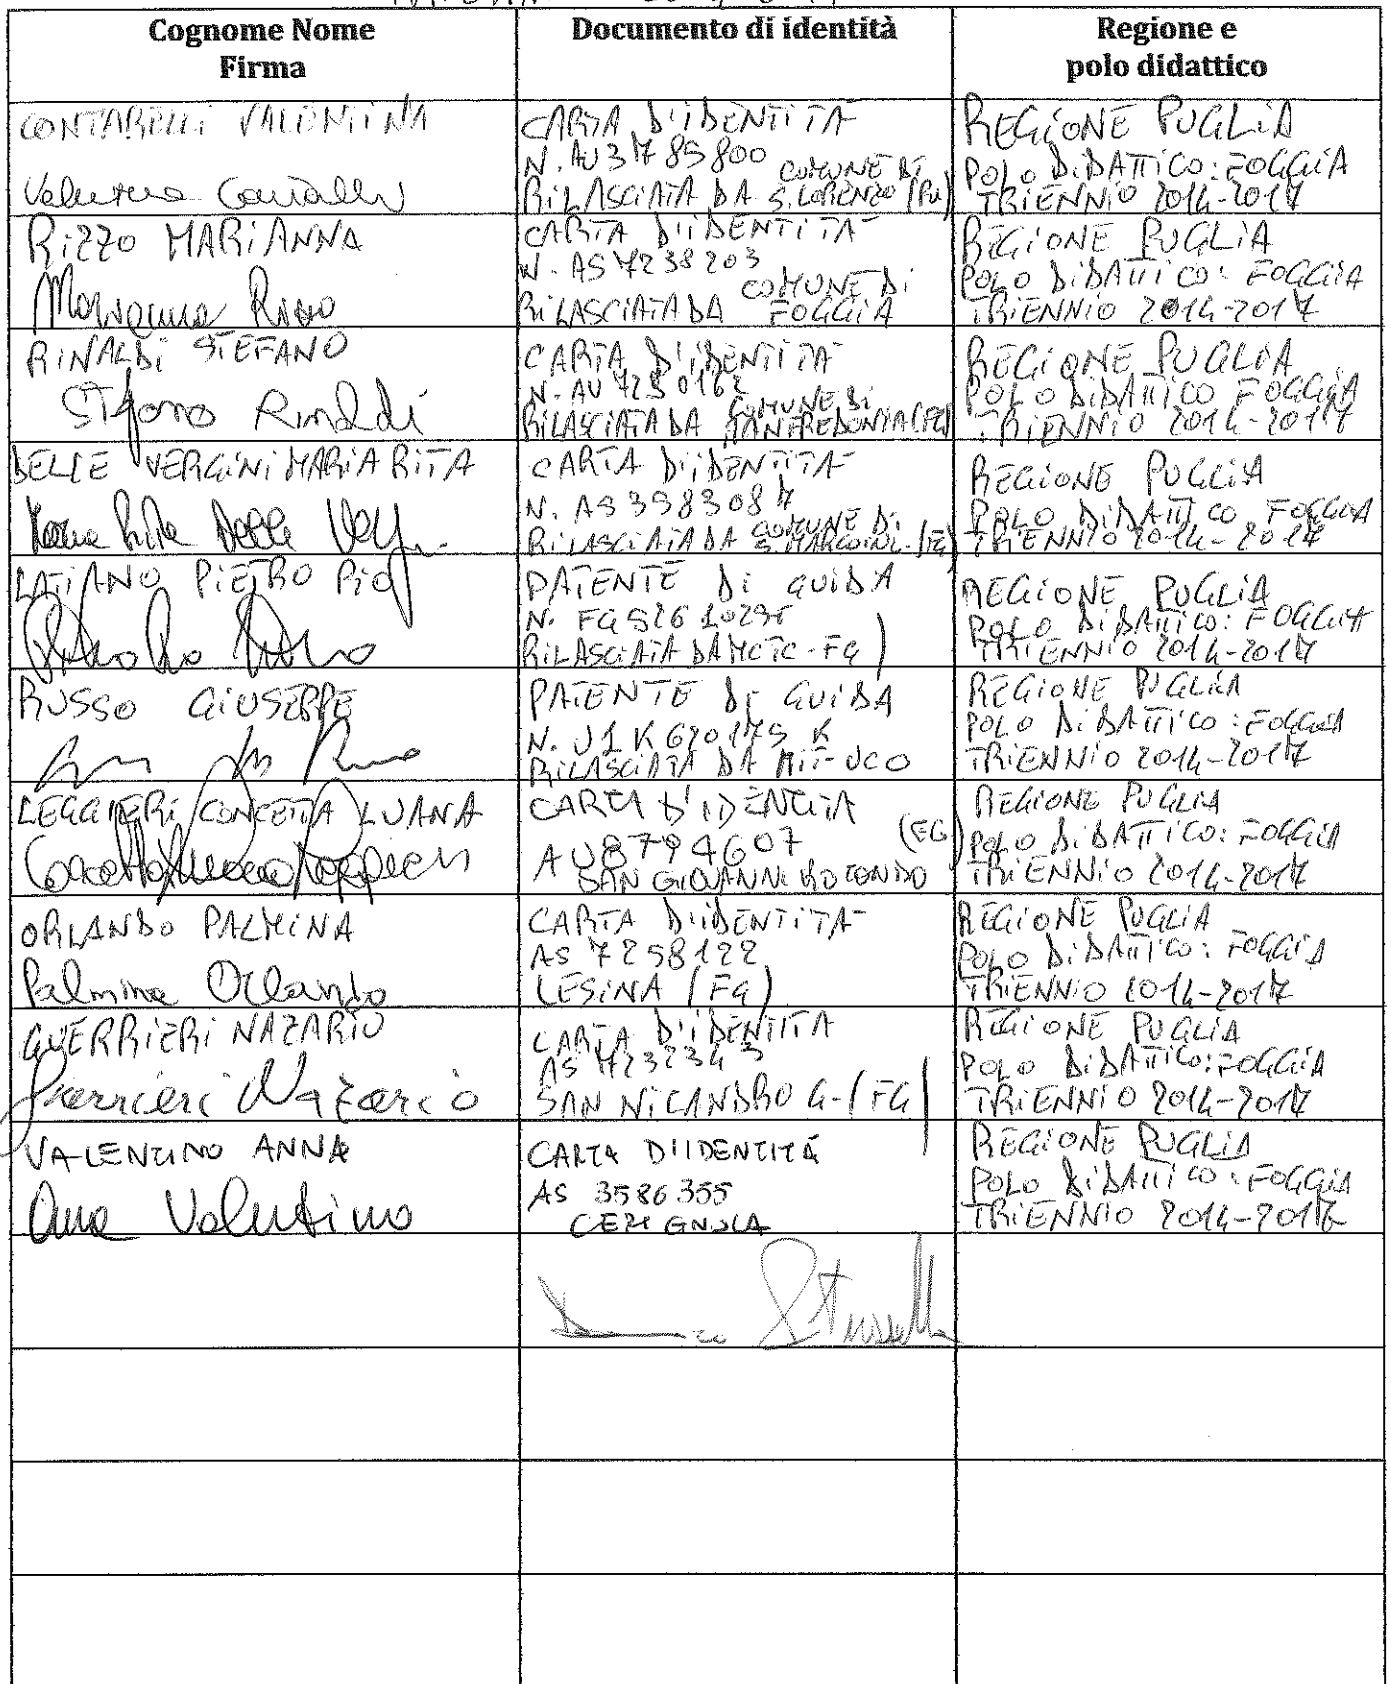 Cognome Nome
Firma
Documento di identità
Regione e
polo didattico
CONTARELLI VALENTINA
CARTA D'IDENTITÀ
N. AU3785800
RILASCIATA DA COMUNE DI S. LORENZO
REGIONE PUGLIA
POLO DIDATTICO: FOGGIA
TRIENNIO 2014-2017
RIZZO MARIANNA
Marianna Rizzo
CARTA D'IDENTITÀ
N. AS7238203
RILASCIATA DA COMUNE DI FOGGIA
REGIONE PUGLIA
POLO DIDATTICO: FOGGIA
TRIENNIO 2014-2017
RINALDI STEFANO
Stefano Rinaldi
CARTA D'IDENTITÀ
N. AU
RILASCIATA DA COMUNE DI MANFREDONIA (FG)
REGIONE PUGLIA
POLO DIDATTICO FOGGIA
TRIENNIO 2014-2017
DELLE VERGINI MARIA RITA
Maria Rita Delle Vergini
CARTA D'IDENTITÀ
N. AS3583087
RILASCIATA DA COMUNE DI S. MARCO IN L. (FG)
REGIONE PUGLIA
POLO DIDATTICO FOGGIA
TRIENNIO 2014-2017
LATIANO PIETRO PIO
PATENTE DI GUIDA
N.
RILASCIATA DA MCTC-FG
REGIONE PUGLIA
POLO DIDATTICO: FOGGIA
TRIENNIO 2014-2017
RUSSO GIUSEPPE
PATENTE DI GUIDA
N. U1K670175K
RILASCIATA DA MIT-UCO
REGIONE PUGLIA
POLO DIDATTICO: FOGGIA
TRIENNIO 2014-2017
LEGGIERI CONCETTA LUANA
Concetta Luana Leggieri
CARTA D'IDENTITA
AU8794607
SAN GIOVANNI ROTONDO (FG)
REGIONE PUGLIA
POLO DIDATTICO: FOGGIA
TRIENNIO 2014-2017
ORLANDO PALMINA
Palmina Orlando
CARTA D'IDENTITÀ
AS 7258122
LESINA (FG)
REGIONE PUGLIA
POLO DIDATTICO: FOGGIA
TRIENNIO 2014-2017
GUERRIERI NAZARIO
Guerrieri Nazario
CARTA D'IDENTITA
AS 7232343
SAN NICANDRO G. (FG)
REGIONE PUGLIA
POLO DIDATTICO: FOGGIA
TRIENNIO 2014-2017
VALENTINO ANNA
Anna Valentino
CARTA D'IDENTITÁ
AS 3586355
CERIGNOLA
REGIONE PUGLIA
POLO DIDATTICO: FOGGIA
TRIENNIO 2014-2017